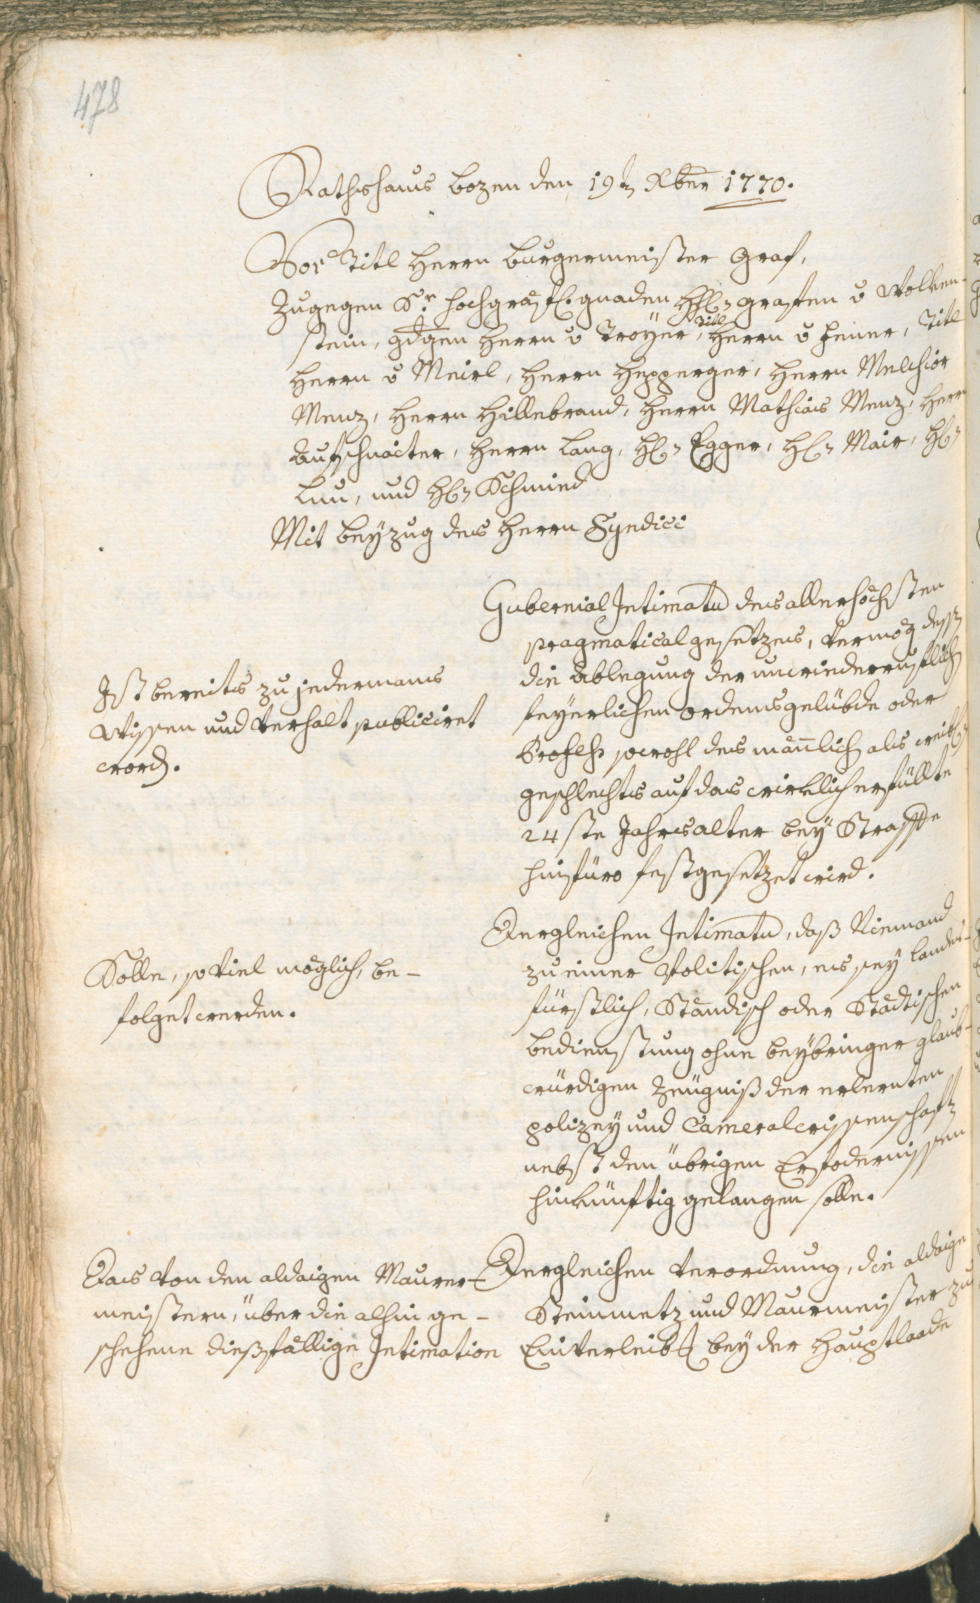 478
Rathshaus Bozen den 19t Xber 1770.
Vor Titl Herrn Burgermeister Graf,
Zugegen Sr. hochgräfl. gnaden H: grafen v Wolken-
stein, gdgen Herrn v Troyer, Titl Herrn v Hener, Titl
Herrn v Meirl, Herrn Hepperger, Herrn Melchior
Menz, Herrn Hillebrand, Herrn Mathias Menz, Herrn
Aufschnaiter, Herrn Lang, H: Egger, H: Mair, H:
Luu, und H: Schmied
Mit Beyzug des Herrn Syndici
Gubernial Intimatum des allerhöchsten
pragmatical gesetzens, vermög dessen
die Ablegung der unwiederruflich
feyerlichen ordensgelübde oder
Profess sowohl des mänlich als weibl:
geschlechts auf das wirklich erfüllte
24ste Jahrsalter bey Straffe
hinfüro festgesetzet wird.
Ist bereits zu jedermans
Wissen und Verhalt publiciret
word.
Dergleichen Intimatum, daß Niemand
zu einer Politischen, es sey landes-
fürstlich, Ständisch oder Städtischen
bedienstung ohne beybringer glaub-
würdigen Zeügniß der erlernten
polizey und Cameralwissenschaft
nebst den übrigen Erfodernissen
hinkünftig gelangen solle.
Solle, so viel möglich, be-
folget werden.
Dergleichen Verordnung, die aldaige
Steinmetz und Maurmeister zu
Einverleibt bey der Hauptlaade
Das von den aldaigen Maurer-
meistern, über die alhin ge-
schehene dießfällige Intimation